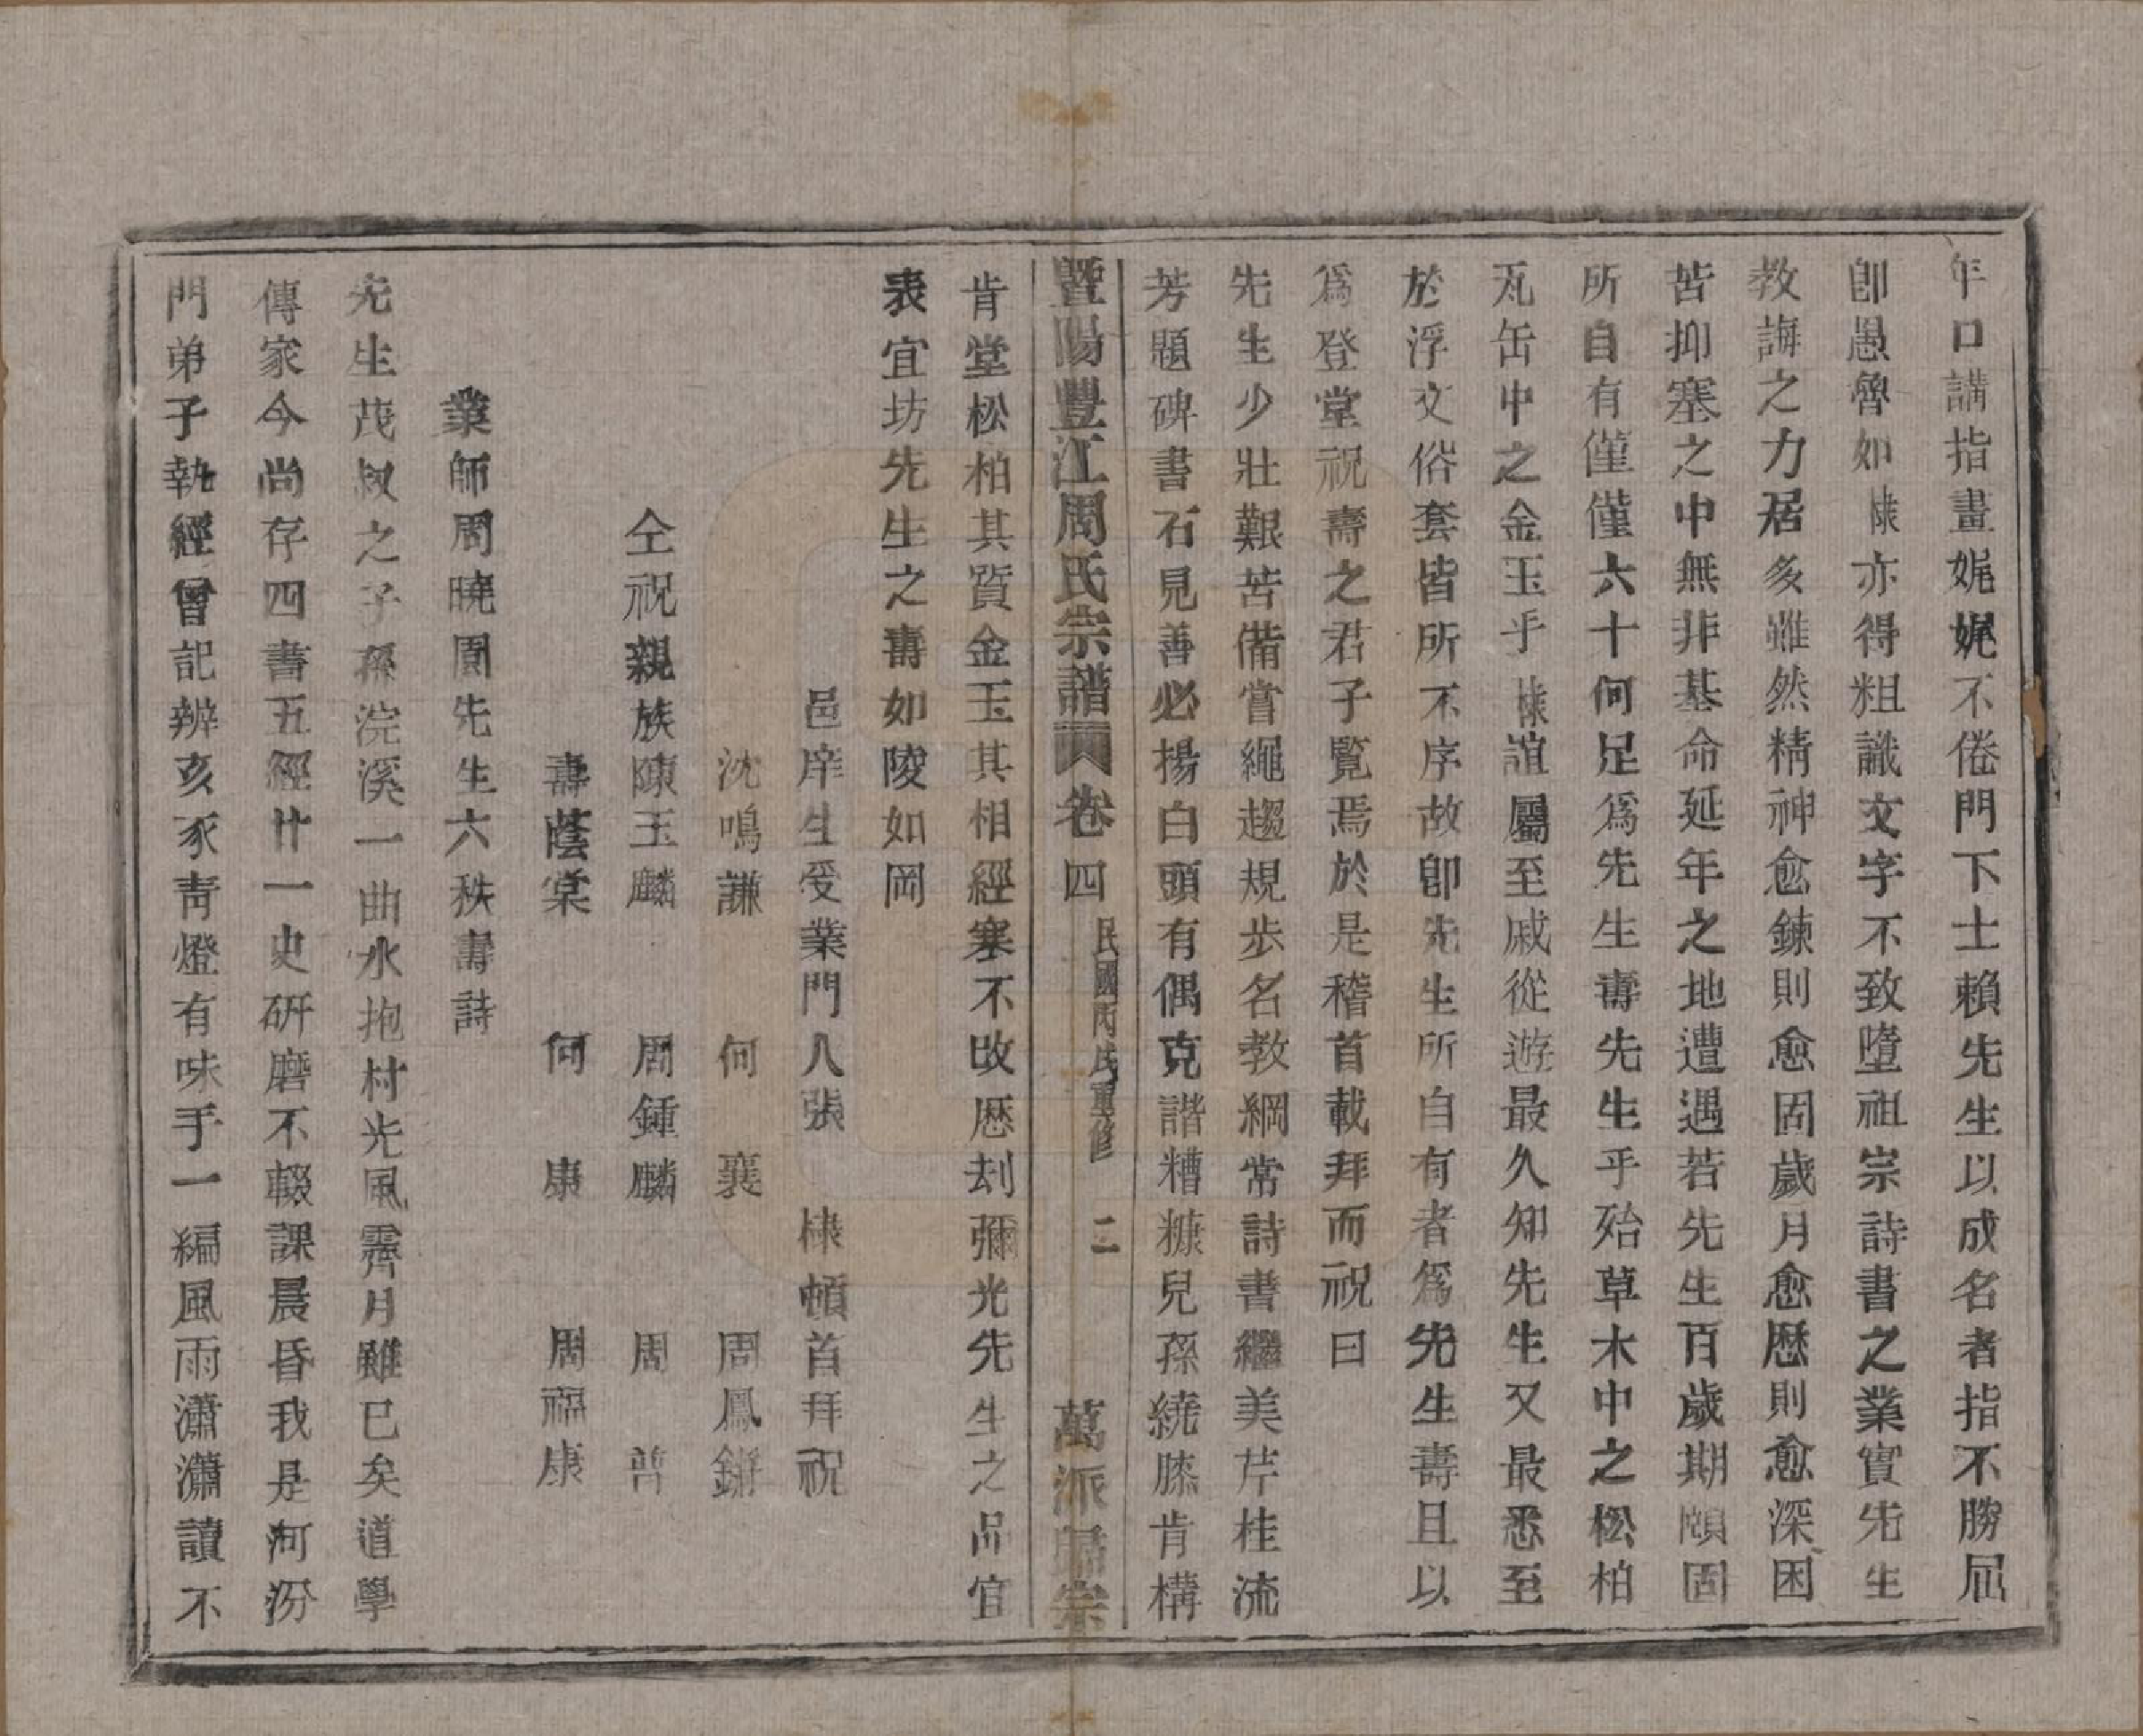 年口講指畫娓娓不倦門下士賴先生以成名者指不勝屈
卽愚魯如棣亦得粗識文字不致墮祖宗詩書之業實先生
教誨之力居多雖然精神愈鍊則愈固歲月愈歷則愈深困
苦抑塞之中無非基命延年之地遭遇若先生百歲期頤固
所自有僅僅六十何足爲先生壽先生乎殆草木中之松柏
瓦缶中之金玉乎棣誼屬至戚從遊最久知先生又最悉至
於浮文俗套皆所不序故卽先生所自有者爲先生壽且以
爲登堂祝壽之君子覽焉於是稽首載拜而祝曰
先生少壯艱苦備嘗繩趨規步名教綱常詩書繼美芹桂流
芳題碑書石見善必揚白頭有偶克諧糟糠兒孫繞膝肯構
暨陽豐江周氏宗譜 卷四 民國丙辰重修 二 萬派歸宗
肯堂松柏其質金玉其相經寒不改歷刦彌光先生之品宜
表宜坊先生之壽如陵如岡
邑庠生受業門人張 棣頓首拜祝
沈鳴謙 何襄 周鳳鏘
仝祝親族陳玉麟 周鍾麟 周普
壽蔭棠 何康 周福康
業師周曉園先生六秩壽詩
先生茂叔之子孫浣溪一曲水抱村光風霽月雖已矣道學
傳家今尚存四書五經廿一史研磨不輟課晨昏我是河汾
門弟子執經曾記辨亥豕靑燈有味手一編風雨瀟瀟讀不